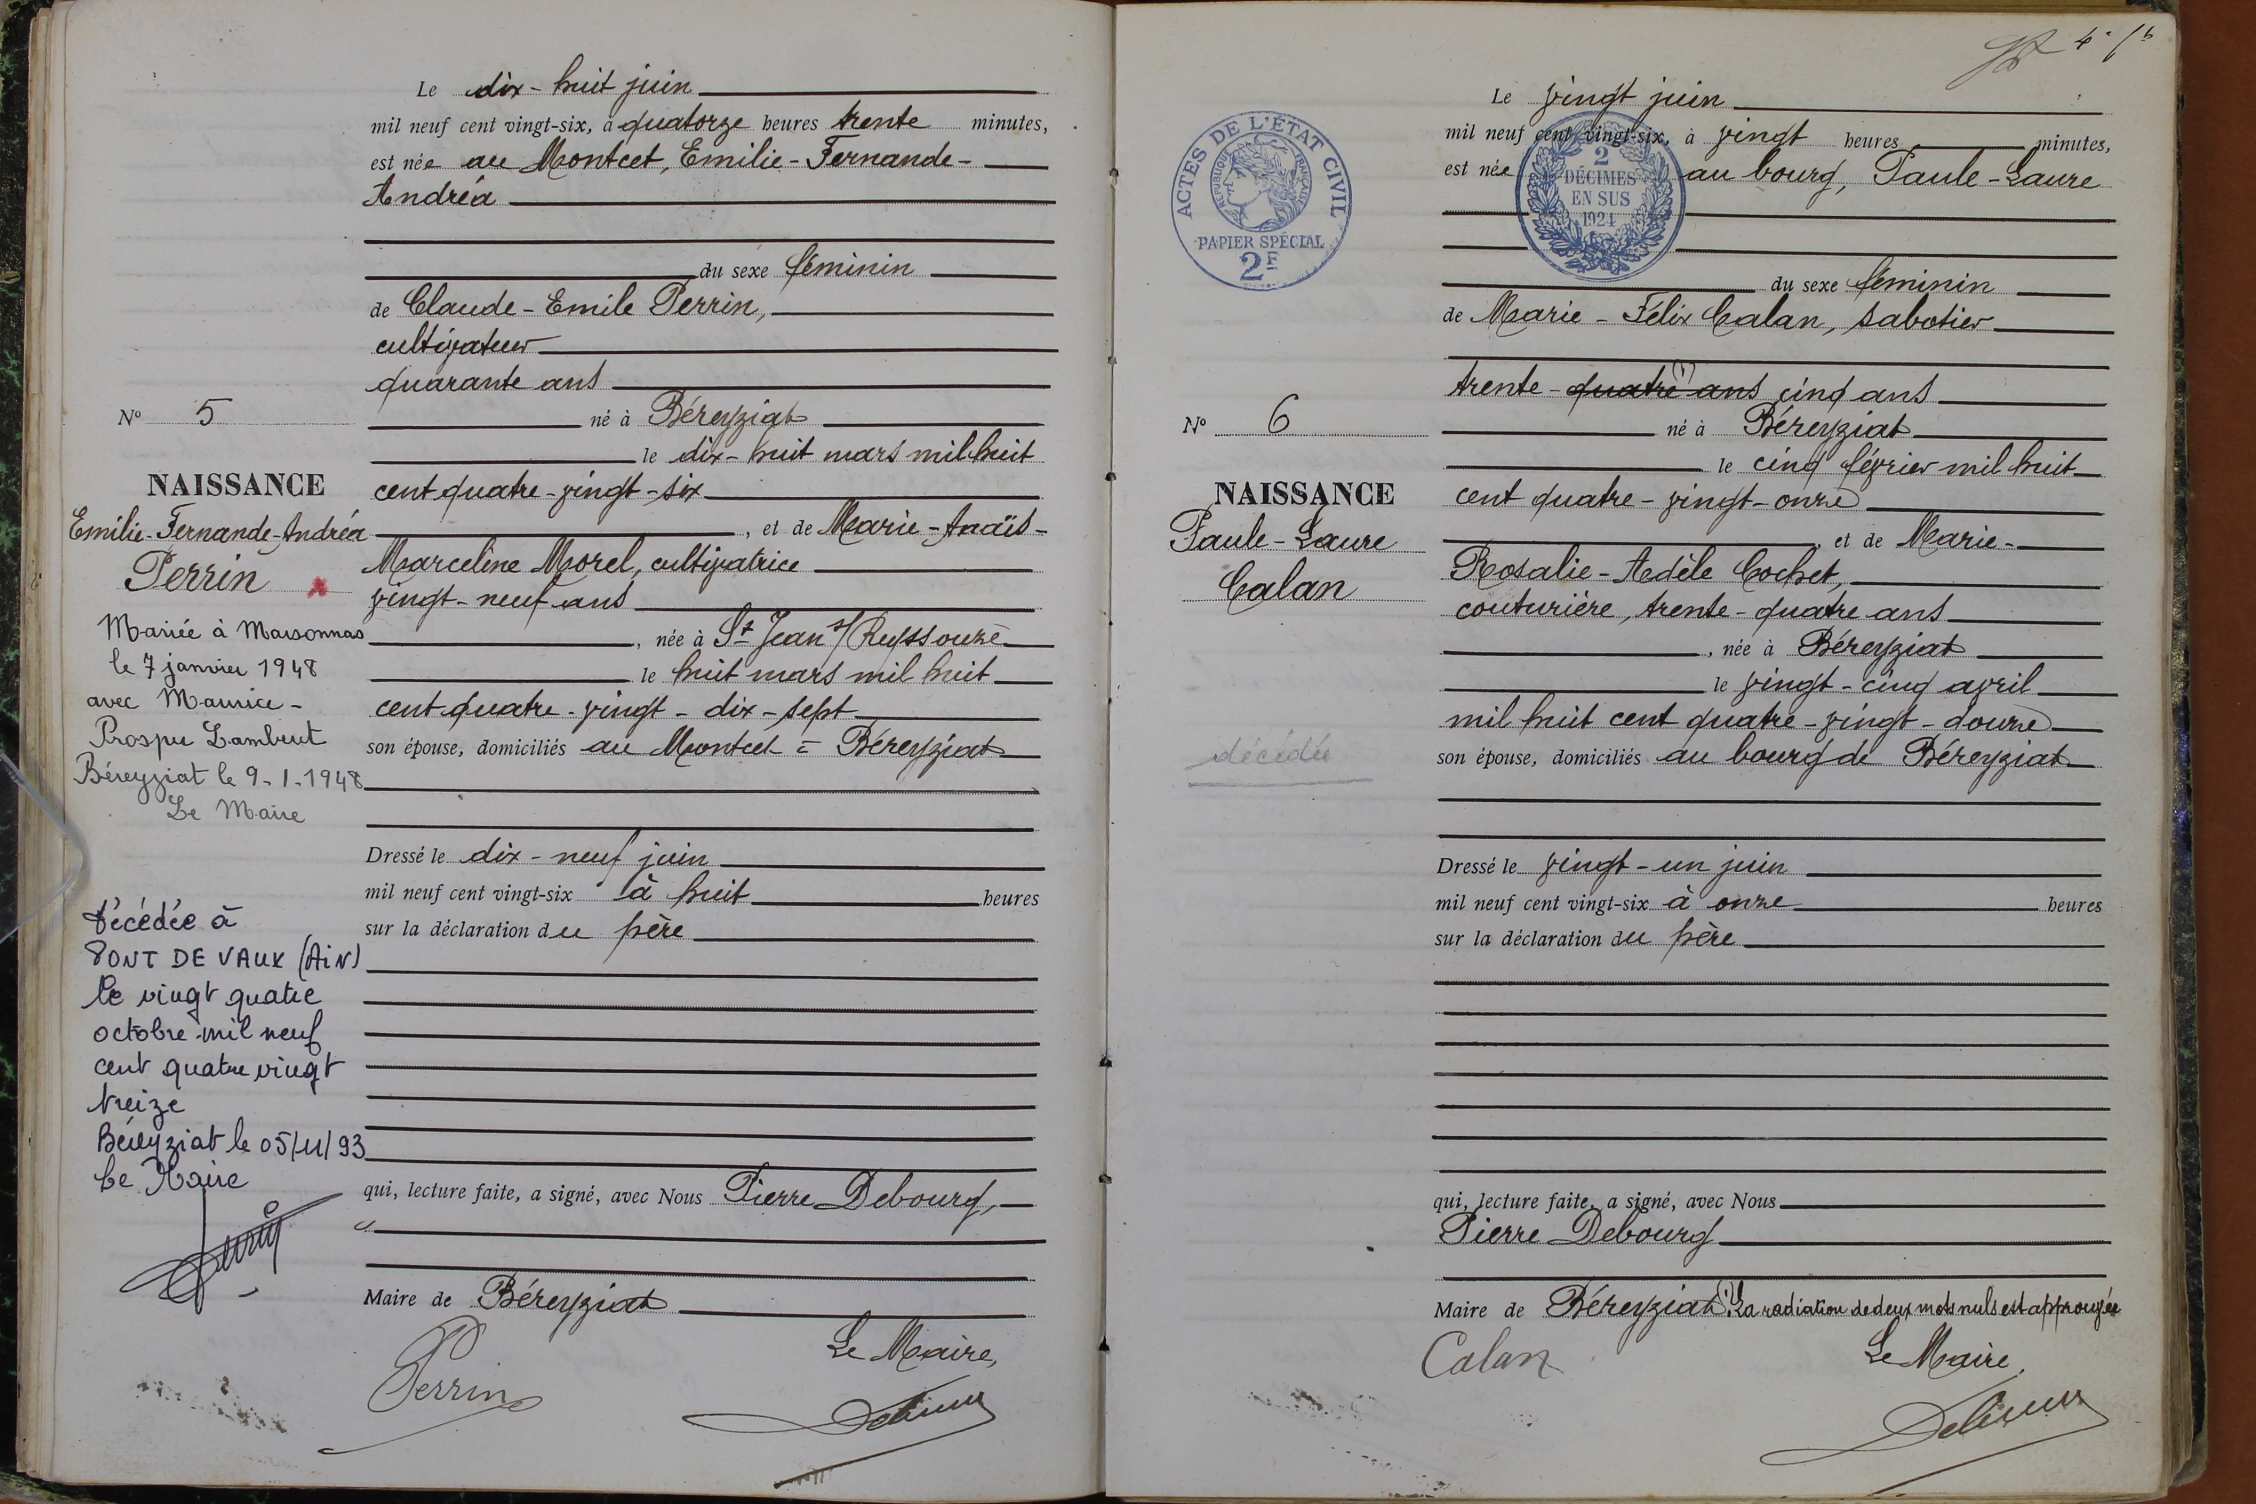 Le dix-huit juin
mil neuf cent vingt-six, à quatorze heures trente minutes,
est née au Montcet, Emilie-Fernande-
Andréa
du sexe féminin
de Claude-Emile Perrin,
cultivateur
quarante ans
né à Béreyziat
le dix-huit mars mil huit
cent quatre-vingt-six
, et de Marie-Anaïs-
Marceline Morel, cultivatrice
vingt-neuf ans
, née à St Jean s/ Reyssouze
le huit mars mil huit
cent quatre-vingt-dix-sept
son épouse, domiciliés au Montcet = Béreyziat
Dressé le dix-neuf juin
mil neuf cent vingt-six à huit heures
sur la déclaration du père
qui, lecture faite, a signé, avec Nous Pierre Debourg,
Maire de Béreyziat
Le Maire,
Perrin
No 5
NAISSANCE
Emilie-Fernande-Andréa
Perrin
Mariée à Maisonnas
le 7 janvier 1948
avec Maurice-
Prosper Lambert
Béreyziat le 9-1-1948
Le Maire
Décédée à
PONT DE VAUX (AiN)
le vingt quatre
octobre mil neuf
cent quatre vingt
treize
Béreyziat le 05/11/93
Le Maire
4
ACTES DE L'ÉTAT CIVIL
RÉPUBLIQUE FRANÇAISE
PAPIER SPÉCIAL
2F
2
DÉCIMES
EN SUS
1924
Le vingt juin
mil neuf cent vingt-six, à vingt heures minutes,
est née au bourg, Paule-Laure
du sexe féminin
de Marie-Félix Calan, sabotier
trente-quatre (1) ans cinq ans
né à Béreyziat
le cinq février mil huit
cent quatre-vingt-onze
et de Marie-
Rosalie-Adèle Cochet,
couturière, trente-quatre ans
, née à Béreyziat
le vingt-cinq avril
mil huit cent quatre-vingt-douze
son épouse, domiciliés au bourg de Béreyziat
Dressé le vingt-un juin
mil neuf cent vingt-six à onze heures
sur la déclaration du père
qui, lecture faite, a signé, avec Nous
Pierre Debourg
Maire de Béreyziat (1) La radiation de deux mots nuls est approuvée
Calan
Le Maire,
No 6
NAISSANCE
Paule-Laure
Calan
décédée